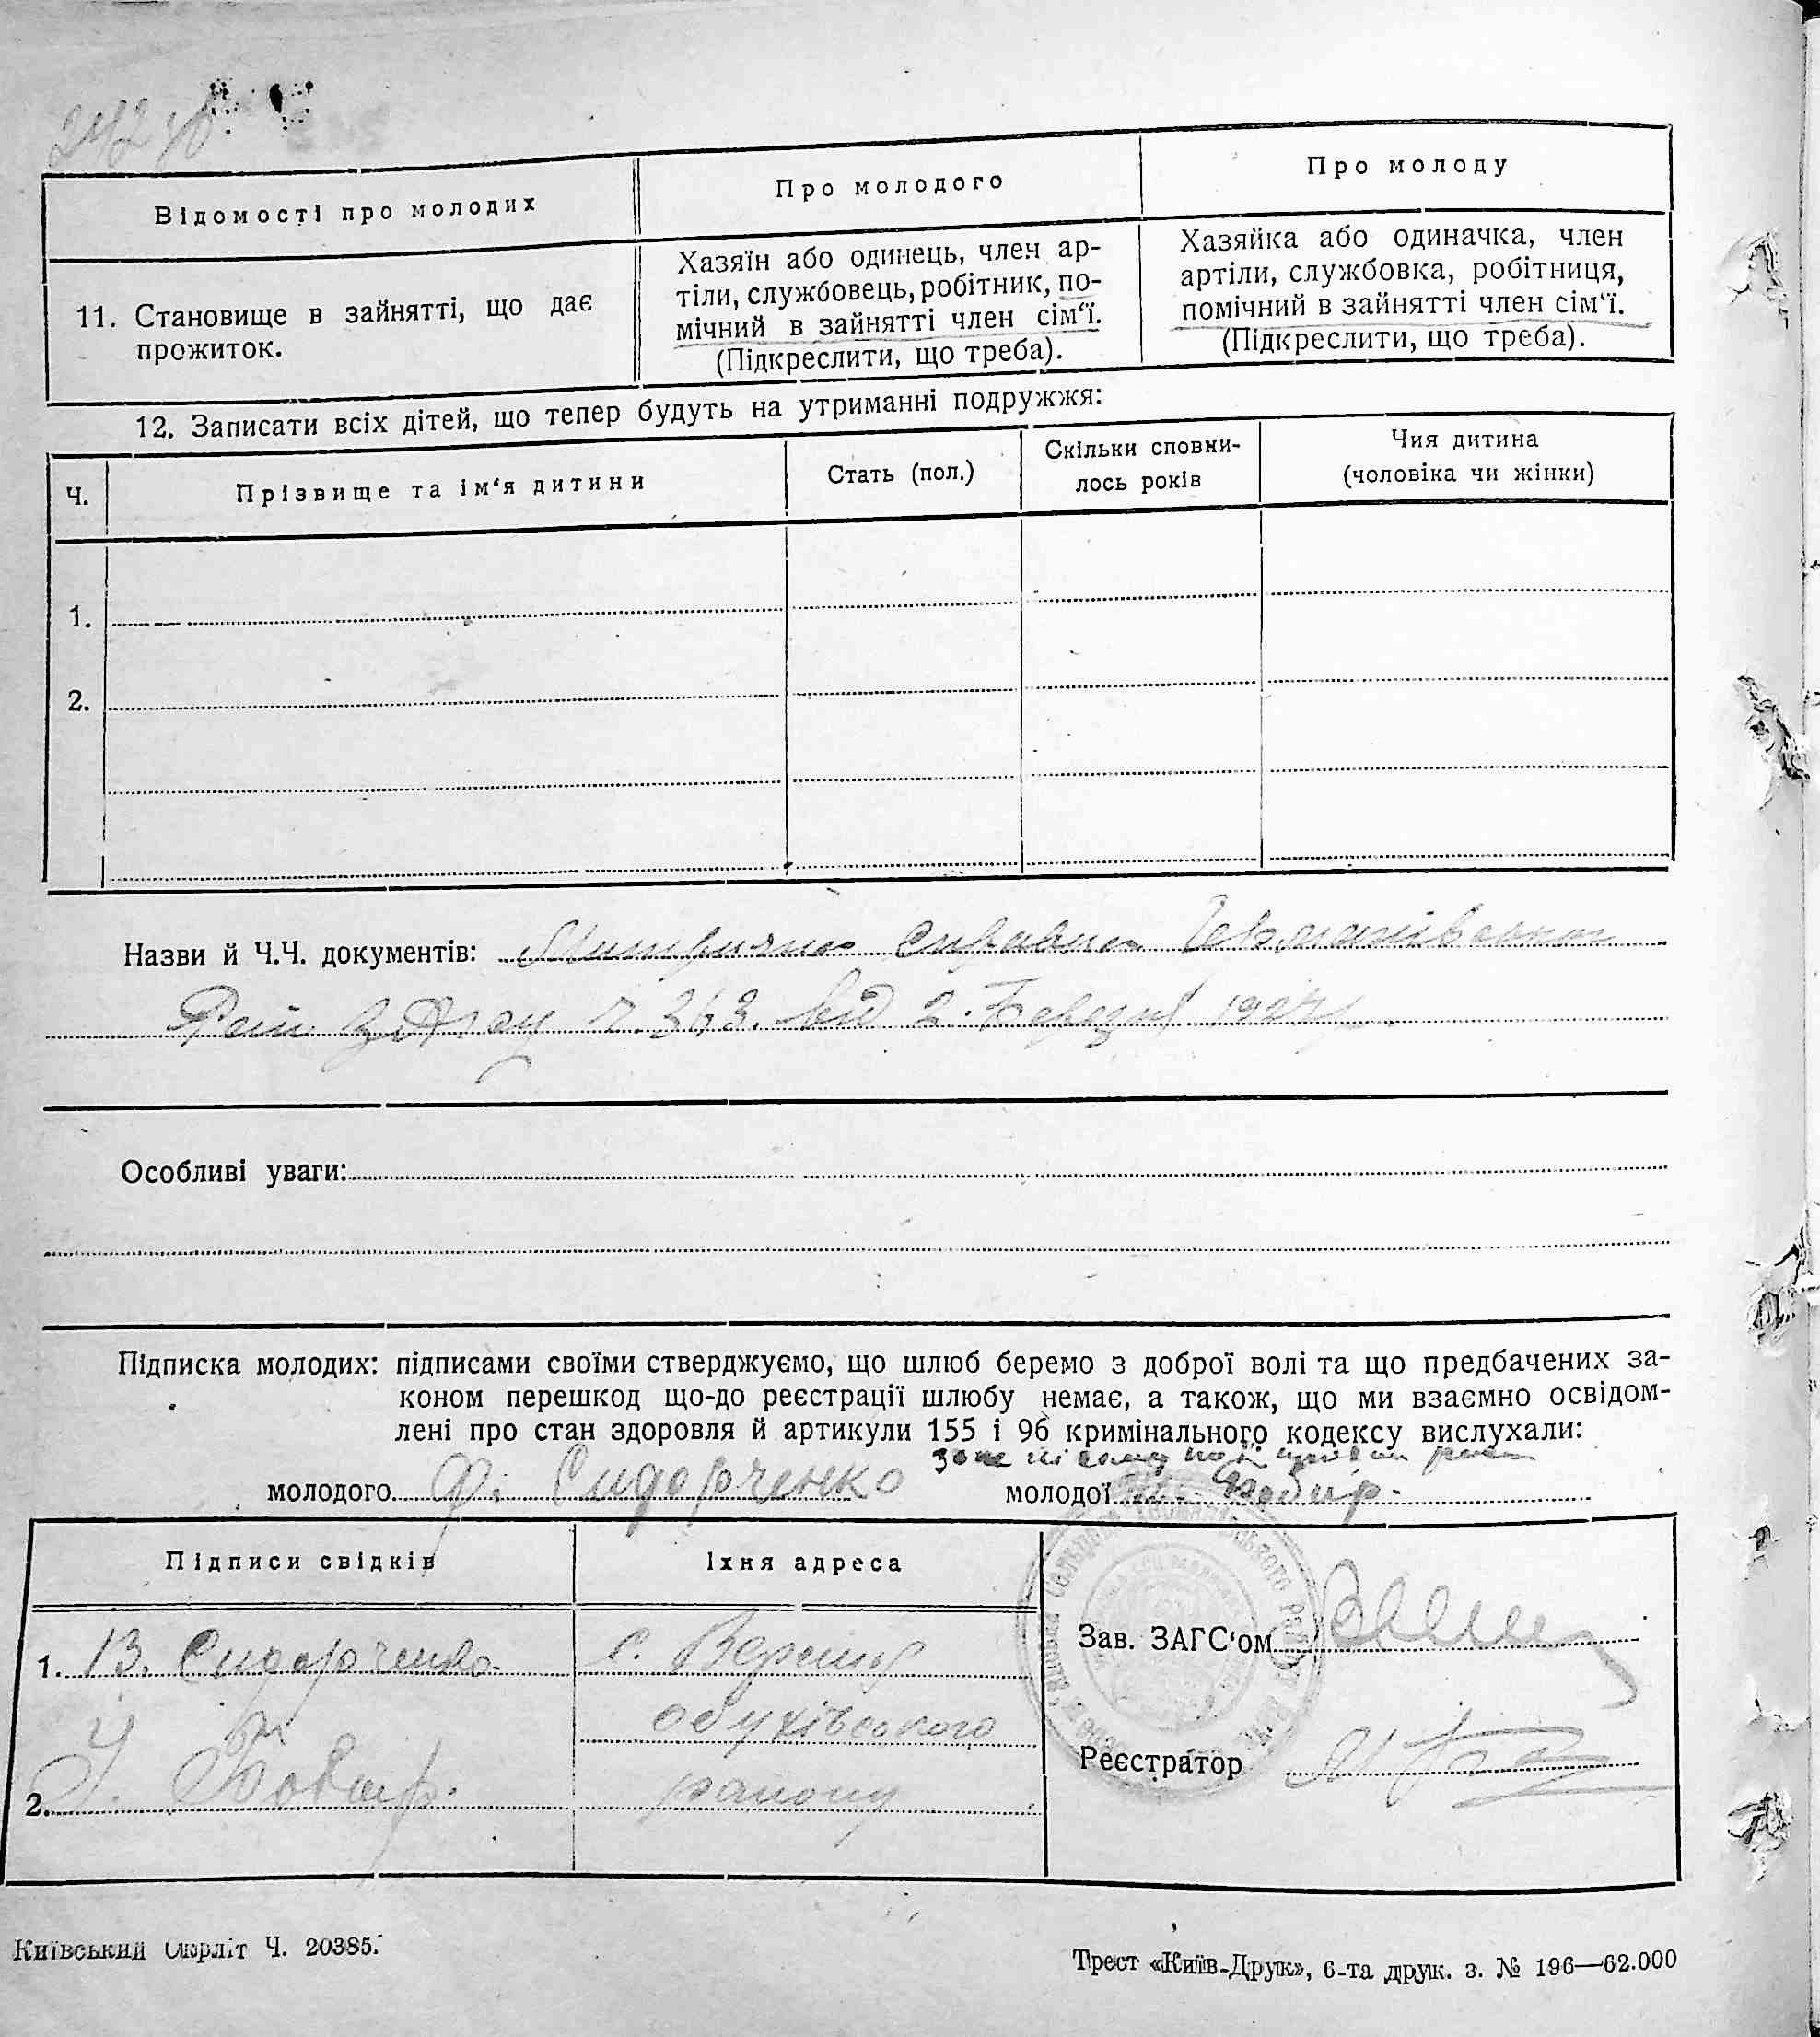 242 зв.
Відомості про молодих
Про молодого
Про молоду
11. Становище в зайнятті, що дає
прожиток.
Хазяїн або одинець, член ар-
тіли, службовець, робітник, по-
мічний в зайнятті член сім‘ї.
(Підкреслити, що треба).
Хазяйка або одиначка, член
артіли, службовка, робітниця,
помічний в зайнятті член сім‘ї.
(Підкреслити, що треба).
12. Записати всіх дітей, що тепер будуть на утриманні подружжя:
Ч.
Прізвище та ім‘я дитини
Стать (пол.)
Скільки сповни-
лось років
Чия дитина
(чоловіка чи жінки)
1.
2.
Назви й Ч.Ч. документів:
ч. 363. від 2. Березня 1927
Особливі уваги:
Підписка молодих: підписами своїми стверджуємо, що шлюб беремо з доброї волі та що предбачених за-
коном перешкод що-до реєстрації шлюбу немає, а також, що ми взаємно освідом-
лені про стан здоровля й артикули 155 і 96 кримінального кодексу вислухали:
молодого Ф. Сидорченко
молодої
Підписи свідків
Їхня адреса
1. В. Сидорченко
с.
обухівського
2.
району
Зав. ЗАГС‘ом
Реєстратор
Київський Окрліт Ч. 20385.
Трест «Київ-Друк», 6-та друк. з. № 196—62.000